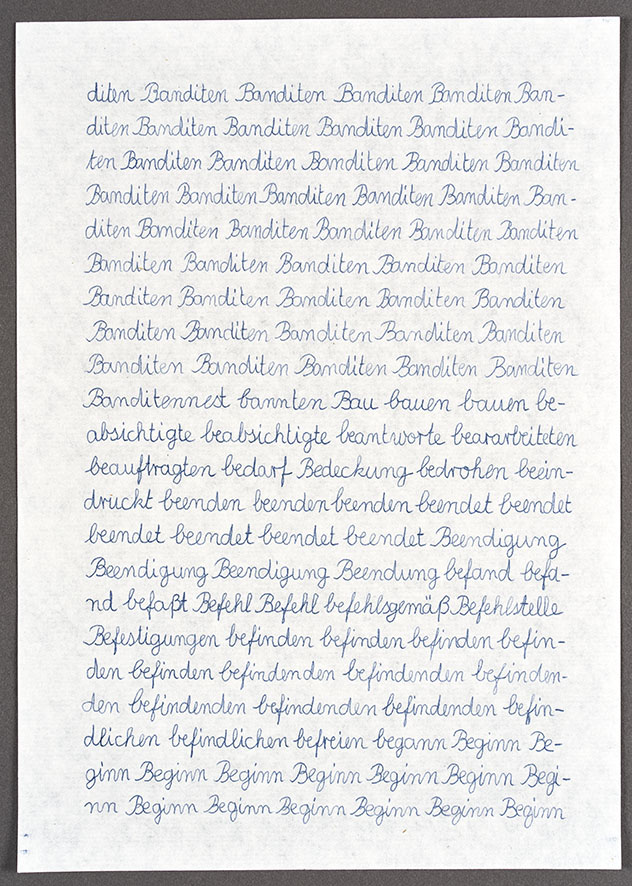 diten Banditen Banditen Banditen Banditen Ban-
diten Banditen Banditen Banditen Banditen Bandi-
ten Banditen Banditen Banditen Banditen Banditen
Banditen Banditen Banditen Banditen Banditen Ban-
diten Banditen Banditen Banditen Banditen Banditen
Banditen Banditen Banditen Banditen Banditen
Banditen Banditen Banditen Banditen Banditen
Banditen Banditen Banditen Banditen Banditen
Banditen Banditen Banditen Banditen Banditen
Banditennest bannten Bau bauen bauen be-
absichtigte beabsichtigte beantworte bearbeiteten
beauftragten bedarf Bedeckung bedrohen beein-
druckt beenden beenden beenden beendet beendet
beendet beendet beendet beendet Beendigung
Beendigung Beendigung Beendung befand befa-
nd befaßt Befehl Befehl befehlsgemäß Befehlstelle
Befestigungen befinden befinden befinden befin-
den befinden befindenden befindenden befinden-
den befindenden befindenden befindenden befin-
dlichen befindlichen befreien begann Beginn Be-
ginn Beginn Beginn Beginn Beginn Beginn Begi-
nn Beginn Beginn Beginn Beginn Beginn Beginn